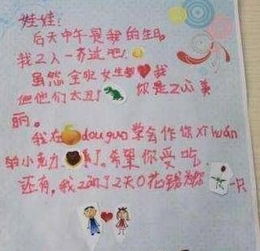 娃娃:
后天中午是我的生日
我2人一齐过吧!
虽然全班女生都我
但他们太丑了 你是zuì美
丽。
我在douguo学会作你xǐhuán
的小克力了。希望你爱吃
还有,我了2天0花钱为你一只